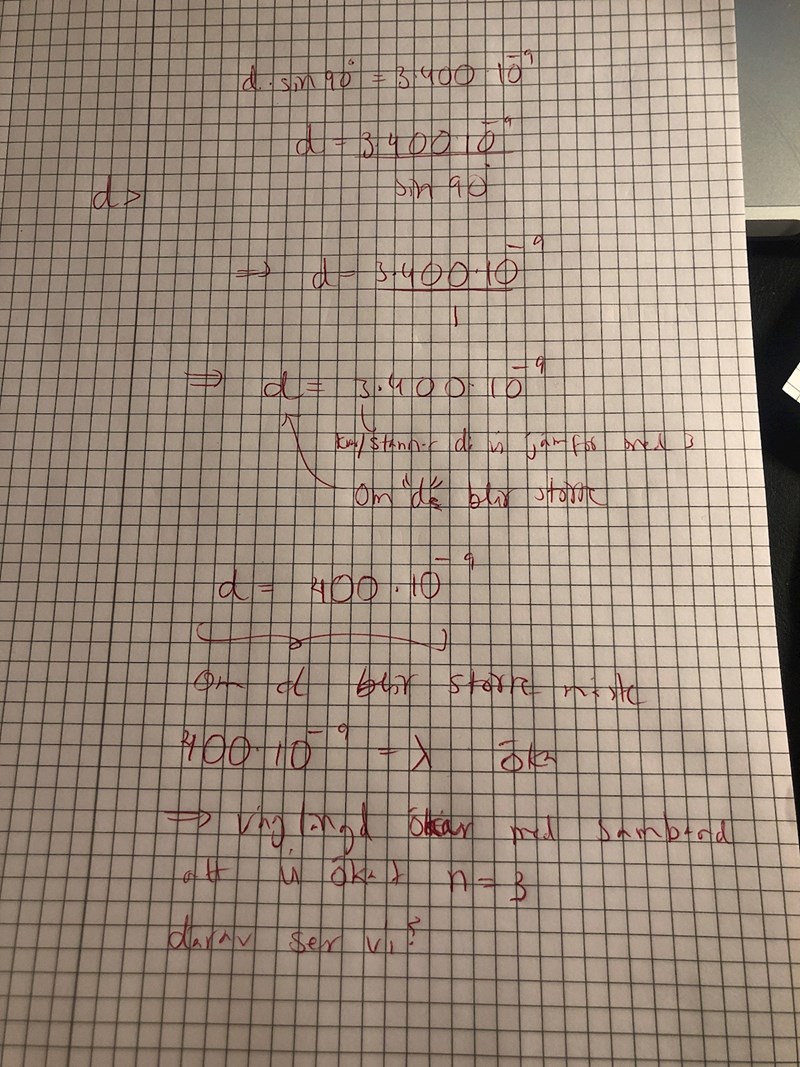 d · sin 90° = 3·400·10⁻⁹
d = 3·400·10⁻⁹
sin 90°
d >
⇒ d = 3·400·10⁻⁹
1
⇒ d = 3·400·10⁻⁹
vi jämför med 3
Om "d" blir större
d = 400·10⁻⁹
Om d blir större måste
400·10⁻⁹ = λ öka
⇒ våglängd ökar med samband
att vi ökat n = 3
därav ser vi?